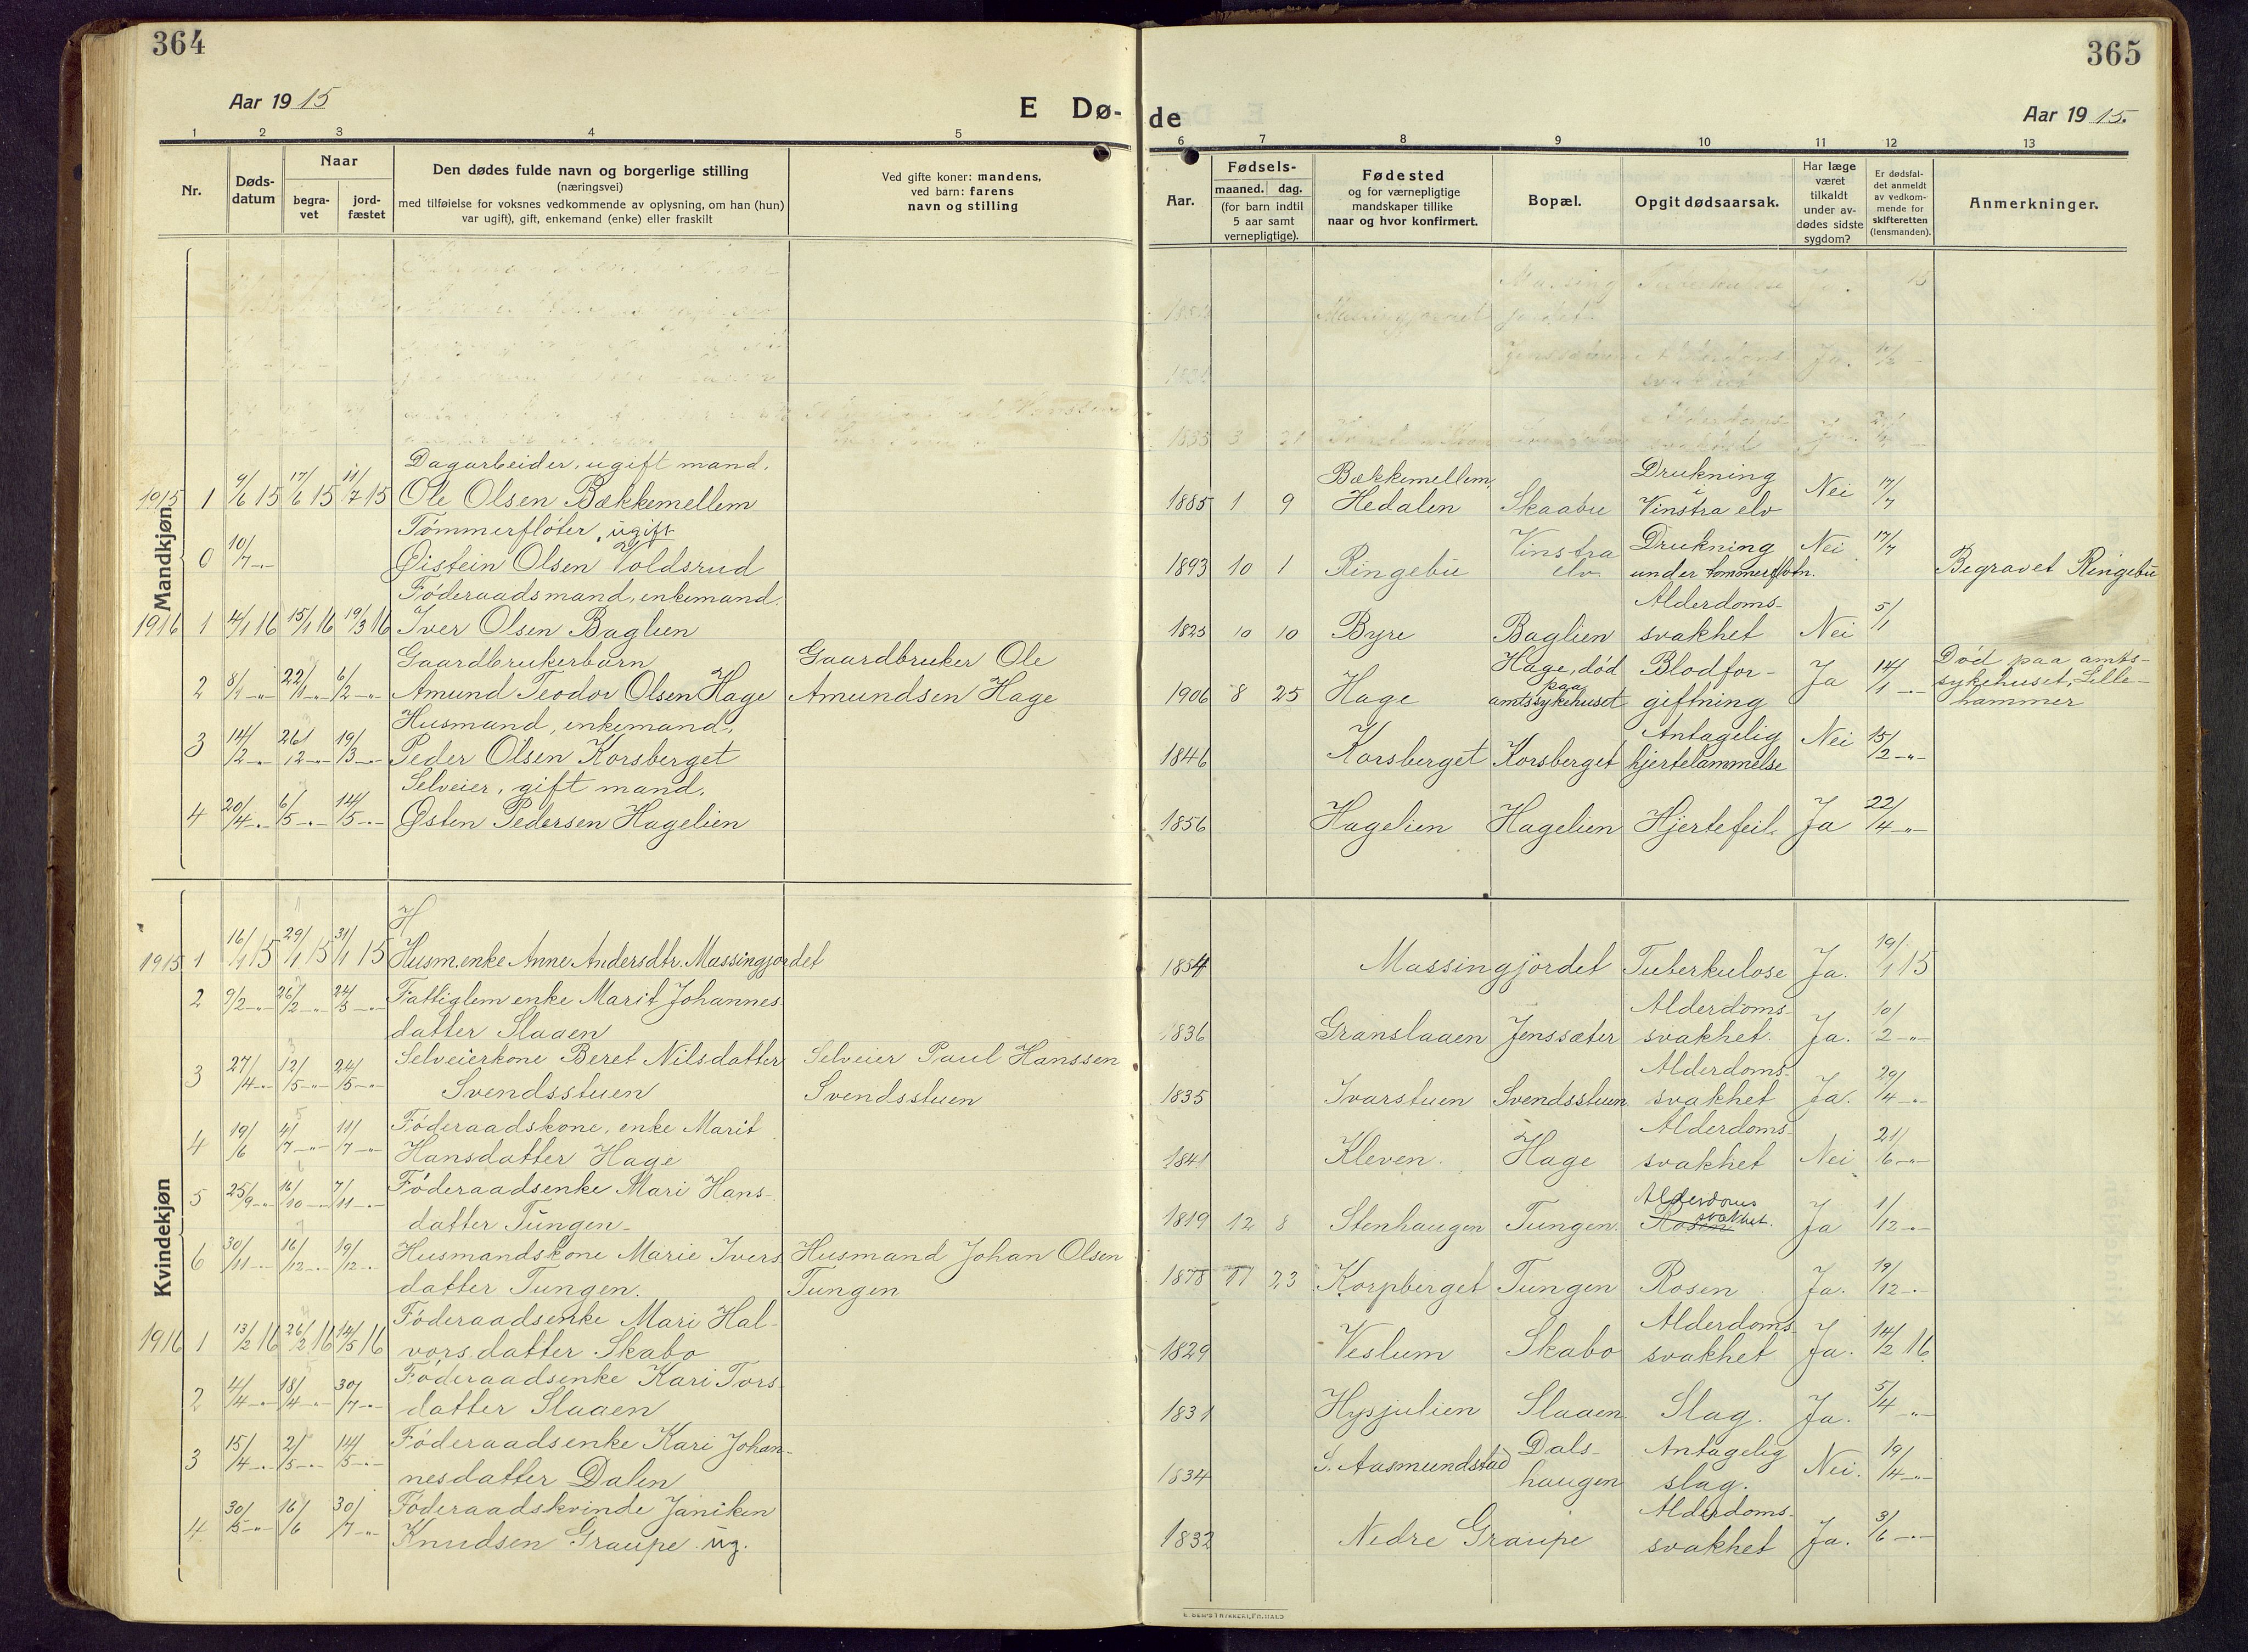 364
Aar 1915
E Dø-
1 2 3 4 5
Nr.
Døds-
datum
Naar
begra-
vet
jord-
fæstet
Den dødes fulde navn og borgerlige stilling
(næringsvei)
med tilføielse for voksnes vedkommende av oplysning, om han (hun)
var ugift), gift, enkemand (enke) eller fraskilt
Ved gifte koner: mandens,
ved barn: farens
navn og stilling
Mandkjøn
Dagarbeider, ugift mand.
1915 1 9/6 15 17/6 15 11/7 15 Ole Olsen Bækkemellem
Tømmerfløter, ugift
0 10/7 -"- Øistein Olsen Voldsrud
Føderaadsmand, enkemand.
1916 1 4/1 16 15/1 16 19/3 16 Iver Olsen Baglien
Gaardbrukerbarn Gaardbruker Ole
2 8/1 -"- 22/1 -"- 6/2 -"- Amund Teodor Olsen Hage Amundsen Hage
Husmand, enkemand.
3 14/2 -"- 26/12 -"- 19/3 -"- Peder Olsen Korsberget
Selveier, gift mand.
4 20/4 -"- 6/5 -"- 14/5 -"- Østen Pedersen Hagelien
Kvindekjøn
H
1915 1 16/1 15 29/1 15 31/1 15 Husm.enke Anne Andersdtr. Massingjordet
2 9/2 -"- 26/2 -"- 24/3 -"- Fattiglem enke Marit Johannes
datter Slaaen
3 27/4 -"- 12/5 -"- 24/5 -"- Selveierkone Beret Nilsdatter Selveier Paul Hanssen
Svendsstuen Svendsstuen
4 19/6 4/7 -"- 11/7 -"- Føderaadskone, enke Marit
Hansdatter Hage
5 25/9 -"- 16/10 -"- 7/11 -"- Føderaadsenke Mari Hans-
datter Tungen
6 30/11 -"- 16/12 -"- 19/12 -"- Husmandskone Marie Ivers Husmand Johan Olsen
datter Tungen. Tungen
1916 1 13/2 16 26/2 16 14/5 16 Føderaadsenke Mari Hal-
vorsdatter Skabo
2 4/4 -"- 18/4 -"- 30/7 -"- Føderaadsenke Kari Tors-
datter Slaaen
3 15/4 -"- 2/5 -"- 14/5 -"- Føderaadsenke Kari Johan-
nesdatter Dalen
4 30/5 -"- 16/6 30/7 -"- Føderaadskvinde Janiken
Knudsen Graupe ug.
365
de
Aar 1915.
6 7 8 9 10 11 12 13
Aar.
Fødsels-
maaned. dag.
(for barn indtil
5 aar samt
vernepligtige).
Fødested
og for værnepligtige
mandskaper tillike
naar og hvor konfirmert.
Bopæl.
Opgit dødsaarsak.
Har læge
været
tilkaldt
under av-
dødes sidste
sygdom?
Er dødsfal-
det anmeldt
av vedkom-
mende for
skifteretten
(lensmanden).
Anmerkninger.
Bækkemellem, Drukning
1885 1 9 Hedalen Skaabu i Vinstra elv Nei 17/7
Vinstra Drukning Nei 17/7
1893 10 1 Ringebu elv. under tømmerfløtn. Begravet Ringebu
Alderdoms-
1823 10 10 Byre Baglien svakhet Nei 5/1
Hage, død Blodfor- Død paa amts-
1906 8 25 Hage paa amtssykehuset giftning Ja 14/1 -"- sykehuset, Lille-
hammer
Antagelig
1846 Korsberget Korsberget hjertelammelse Nei 15/2 -"-
1856 Hagelien Hagelien Hjertefeil. Ja 22/4 -"-
1854 Massingjordet Tuberkulose Ja. 19/1 15
Alderdoms-
1836 Granslaaen Jenssæter svakhet. Ja. 10/2 -"-
Alderdoms-
1835 Ivarstuen Svendsstuen svakhet Ja. 29/4 -"-
Alderdoms-
1841 Kleven. Hage svakhet Nei 21/6 -"-
Alderdoms
1819 12 8 Stenhaugen Tungen. svakhet. Ja 1/12 -"-
1878 11 23 Korpberget Tungen Rosen Ja. 19/12 -"-
Alderdoms
1829 Veslum Skabo svakhet Ja. 14/2 16
1831 Hysjulien Slaaen Slag. Ja. 5/4 -"-
Dals- Antagelig
1834 S. Aasmundstad haugen slag. Nei. 19/4 -"-
Alderdoms-
1832 Nedre Graupe svakhet Ja. 3/6 -"-